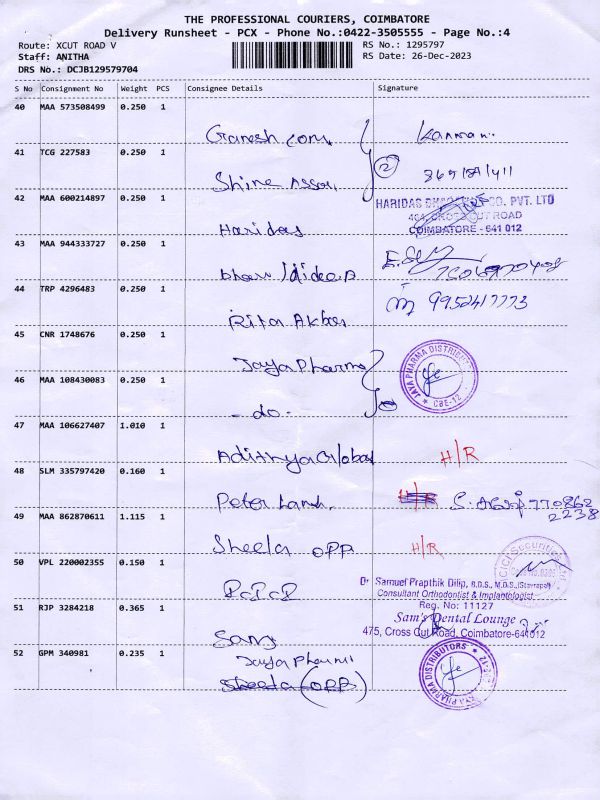 THE PROFESSIONAL COURIERS, COIMBATORE
Delivery Runsheet - PCX - Phone No.:0422-3505555 - Page No.:4
Route: XCUT ROAD V
RS No.: 1295797
Staff: ANITHA
RS Date: 26-Dec-2023
DRS No.: DCJB129579704
S No Consignment No Weight PCS Consignee Details Signature
40 MAA 573508499 0.250 1
Ganesh com. Kannan.
41 TCG 227583 0.250 1
2
Shine Assou
42 MAA 600214897 0.250 1
HARIDAS CO. PVT. LTD
CROSS CUT ROAD
COIMBATORE - 641 012
Haridas
43 MAA 944333727 0.250 1
44 TRP 4296483 0.250 1
9952417773
Rita Akber
45 CNR 1748676 0.250 1
Jaya Pharma
JAYA PHARMA DISTRIBUT
CBE-12
46 MAA 108430083 0.250 1
- do -
47 MAA 106627407 1.010 1
Adithya Global H/R
48 SLM 335797420 0.160 1
Peter H/R 770862
2238
49 MAA 862870611 1.115 1
Sheela OPP H/R
50 VPL 220002355 0.150 1
ICICI Securities
Dr Samuel Prapthik Dilip, B.D.S., M.D.S.,
Consultant Orthodontist & Implantologist
Reg. No: 11127
51 RJP 3284218 0.365 1
Sam's Dental Lounge
475, Cross Cut Road, Coimbatore-641012
Sams
52 GPM 340981 0.235 1
Jaya Pharma
Sheela (OPP)
DISTRIBUTORS